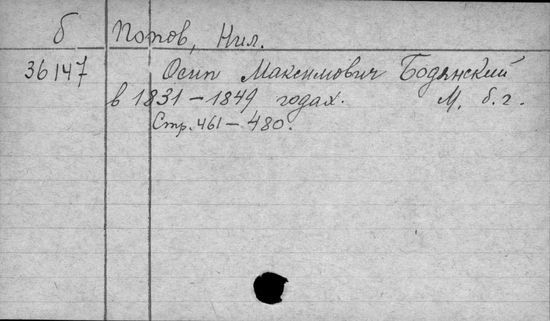 б Попов, Нил.
36147 Осип Максимович Бодянский
в 1831-1849 годах. М. б.г.
Стр. 461-480.